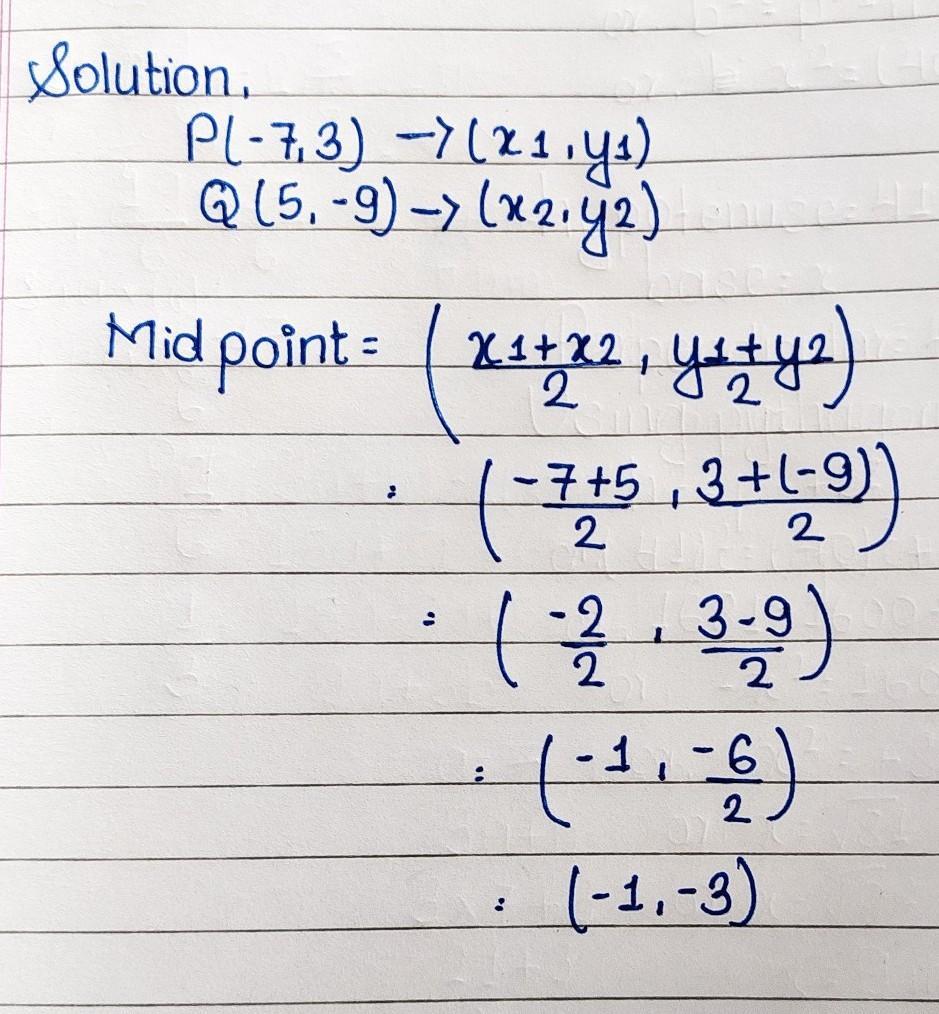 Solution,
P(-7,3) → (x1,y1)
Q(5,-9) → (x2,y2)
Mid point = ( x1+x2/2 , y1+y2/2 )
= ( -7+5/2 , 3+(-9)/2 )
= ( -2/2 , 3-9/2 )
= ( -1 , -6/2 )
= (-1,-3)